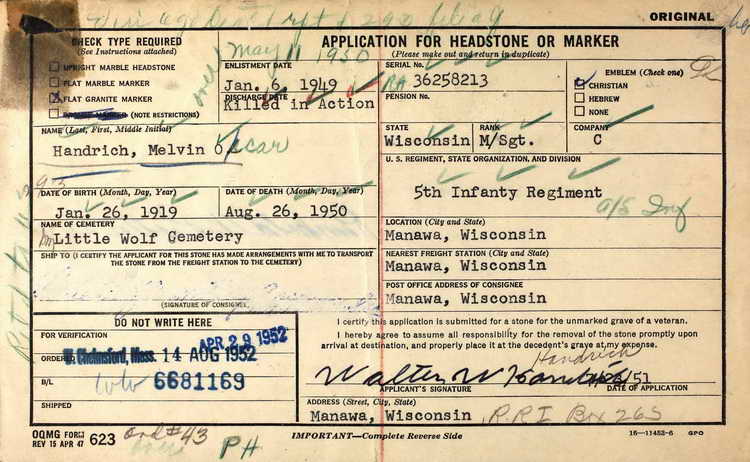 ORIGINAL
CHECK TYPE REQUIRED
(See Instructions attached)
UPRIGHT MARBLE HEADSTONE
FLAT MARBLE MARKER
X FLAT GRANITE MARKER
(NOTE RESTRICTIONS)
May 11 1950
ENLISTMENT DATE
Jan. 6, 1949
DISCHARGE DATE
Killed in Action
APPLICATION FOR HEADSTONE OR MARKER
(Please make out and return in duplicate)
SERIAL No.
RA 36258213
PENSION No.
EMBLEM (Check one)
CHRISTIAN
HEBREW
NONE
NAME (Last, First, Middle Initial)
Handrich, Melvin O scar
STATE
Wisconsin
RANK
M/Sgt.
COMPANY
C
U. S. REGIMENT, STATE ORGANIZATION, AND DIVISION
5th Infanty Regiment
Inf
DATE OF BIRTH (Month, Day, Year)
Jan. 26, 1919
DATE OF DEATH (Month, Day, Year)
Aug. 26, 1950
NAME OF CEMETERY
Little Wolf Cemetery
LOCATION (City and State)
Manawa, Wisconsin
SHIP TO (I CERTIFY THE APPLICANT FOR THIS STONE HAS MADE ARRANGEMENTS WITH ME TO TRANSPORT
THE STONE FROM THE FREIGHT STATION TO THE CEMETERY)
NEAREST FREIGHT STATION (City and State)
Manawa, Wisconsin
POST OFFICE ADDRESS OF CONSIGNEE
Manawa, Wisconsin
(SIGNATURE OF CONSIGNEE)
DO NOT WRITE HERE
FOR VERIFICATION
APR 29 1952
ORDERED
W. Chelmsford, Mass. 14 AUG 1952
B/L
6681169
SHIPPED
I certify this application is submitted for a stone for the unmarked grave of a veteran.
I hereby agree to assume all responsibility for the removal of the stone promptly upon
arrival at destination, and properly place it at the decedent's grave at my expense.
Handrich
Walter W Handrich
APPLICANT'S SIGNATURE
DATE OF APPLICATION
ADDRESS (Street, City, State)
Manawa, Wisconsin R.R I Box 265
OQMG FORM 623
REV 15 APR 47
ord #43
PH
IMPORTANT—Complete Reverse Side
16—11453-6 GPO